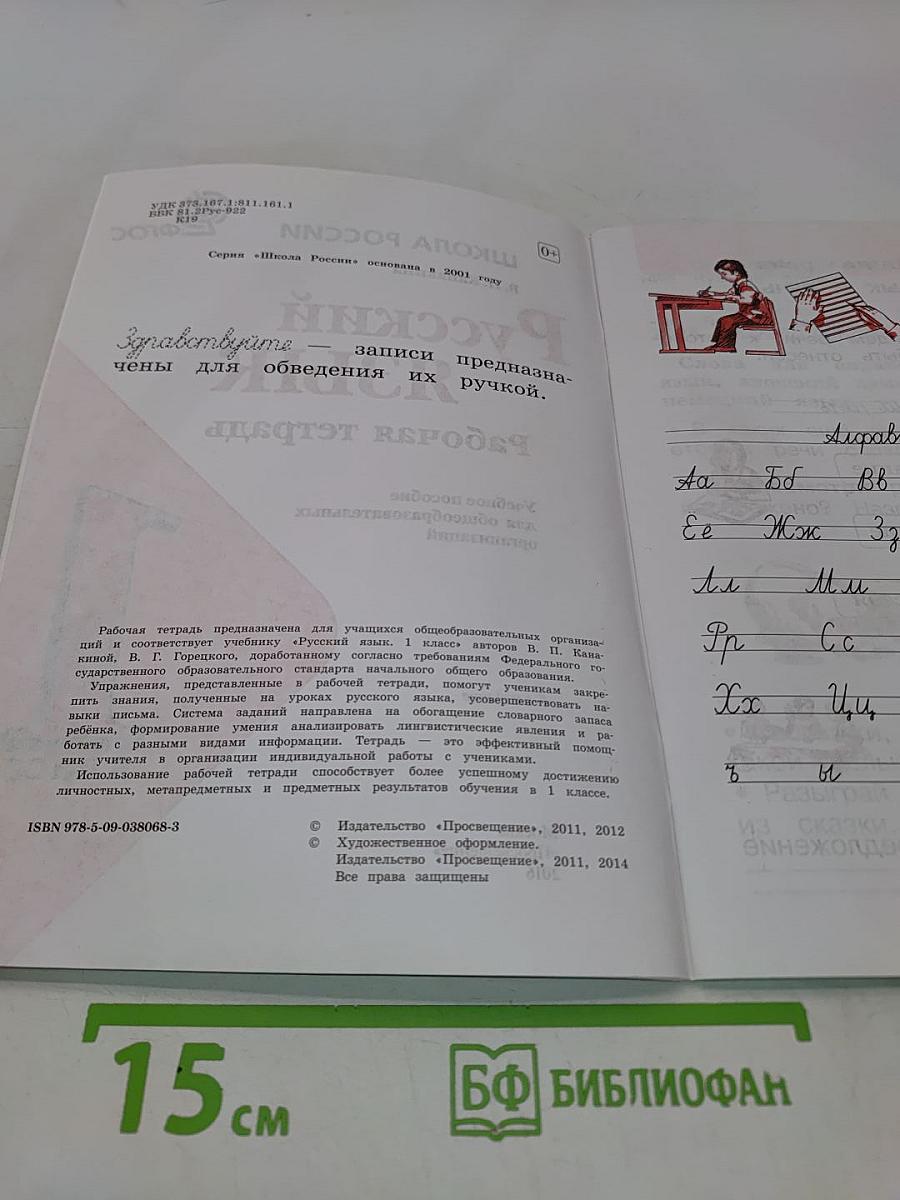 УДК 373.167.1:811.161.1
ББК 81.2Рус-922
К19
0+
Серия «Школа России» основана в 2001 году
Здравствуйте — записи предназна-
чены для обведения их ручкой.
Рабочая тетрадь предназначена для учащихся общеобразовательных организа-
ций и соответствует учебнику «Русский язык. 1 класс» авторов В. П. Кана-
киной, В. Г. Горецкого, доработанному согласно требованиям Федерального го-
сударственного образовательного стандарта начального общего образования.
Упражнения, представленные в рабочей тетради, помогут ученикам закре-
пить знания, полученные на уроках русского языка, усовершенствовать на-
выки письма. Система заданий направлена на обогащение словарного запаса
ребёнка, формирование умения анализировать лингвистические явления и ра-
ботать с разными видами информации. Тетрадь — это эффективный помощ-
ник учителя в организации индивидуальной работы с учениками.
Использование рабочей тетради способствует более успешному достижению
личностных, метапредметных и предметных результатов обучения в 1 классе.
ISBN 978-5-09-038068-3
© Издательство «Просвещение», 2011, 2012
© Художественное оформление.
Издательство «Просвещение», 2011, 2014
Все права защищены
Алфав
Аа Бб Вв
Ёё Жж Зз
Лл Мм
Рр Сс
Хх Цц
ъ ы
15 см
БФ БИБЛИОФАН